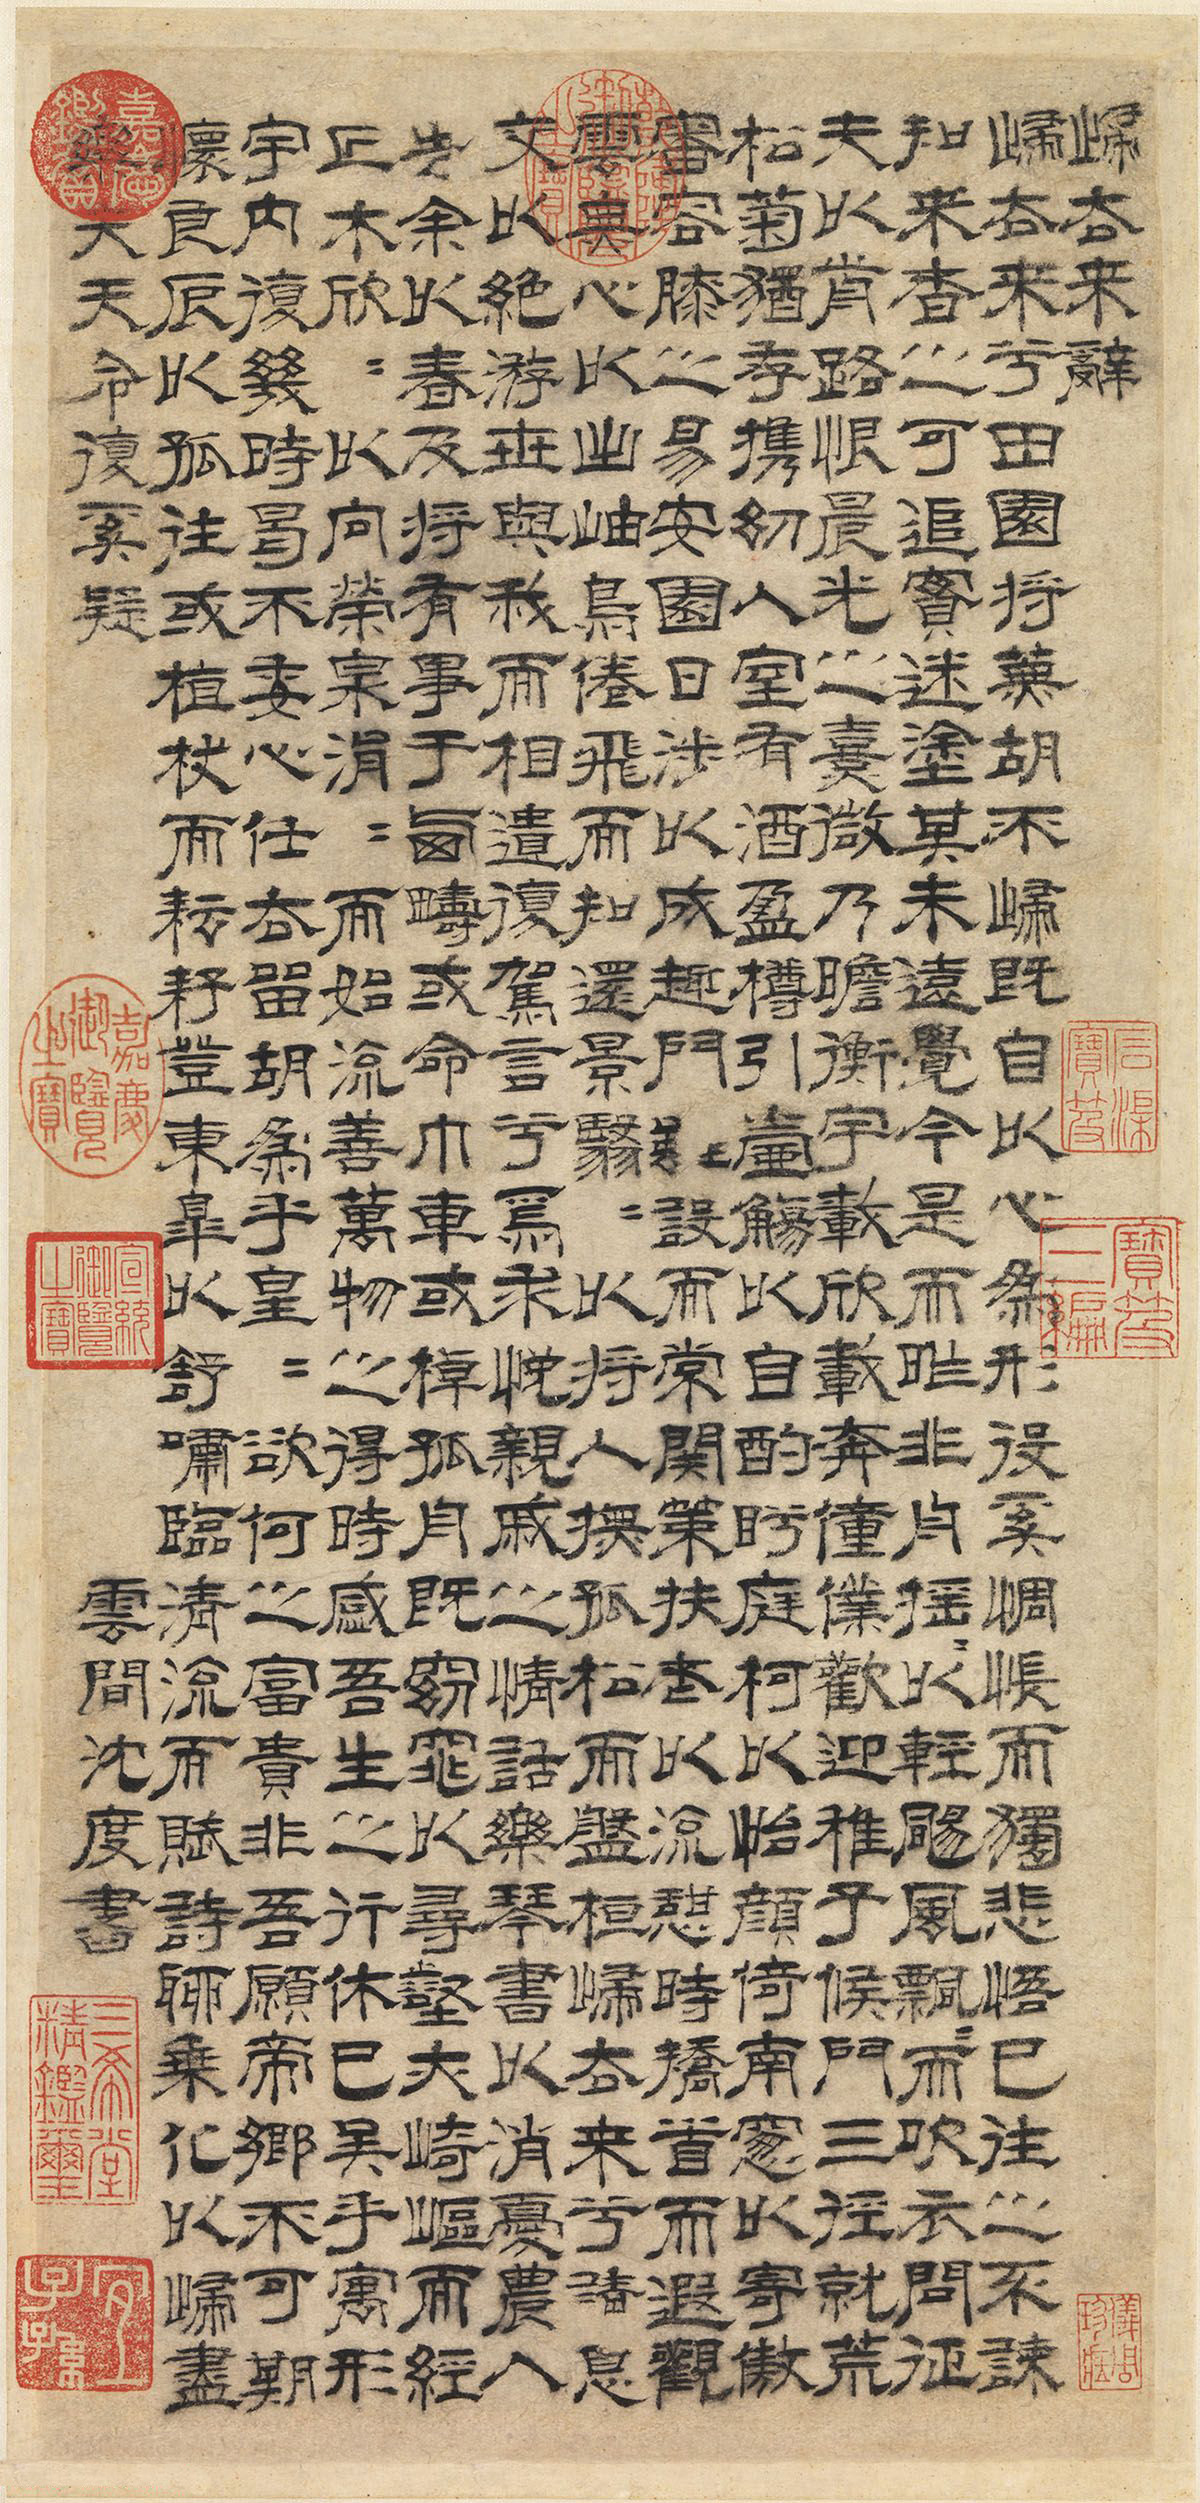 歸去來辭
歸去來兮田園將蕪胡不歸既自以心為形役奚惆悵而獨悲悟已往之不諫
知來者之可追實迷塗其未遠覺今是而昨非舟搖〻以輕颺風飄〻而吹衣問征
夫以前路恨晨光之熹微乃瞻衡宇載欣載奔僮僕歡迎稚子候門三徑就荒
松菊猶存攜幼入室有酒盈樽引壺觴以自酌眄庭柯以怡顏倚南窗以寄傲
審容膝之易安園日涉以成趣門雖設而常關策扶老以流憩時矯首而遐觀
雲無心以出岫鳥倦飛而知還景翳〻以將入撫孤松而盤桓歸去來兮請息
交以絕游世與我而相遺復駕言兮焉求悅親戚之情話樂琴書以消憂農人
告余以春及將有事于西疇或命巾車或棹孤舟既窈窕以尋壑亦崎嶇而經
丘木欣〻以向榮泉涓〻而始流善萬物之得時感吾生之行休已矣乎寓形
宇內復幾時曷不委心任去留胡為乎皇〻欲何之富貴非吾願帝鄉不可期
懷良辰以孤往或植杖而耘耔登東皋以舒嘯臨清流而賦詩聊乘化以歸盡
樂夫天命復奚疑
雲間沈度書
石渠寶笈
寶笈三編
儀周珍藏
乾隆御覽之寶
嘉慶鑑賞
嘉慶御覽之寶
宣統御覽之寶
三希堂精鑑璽
宜子孫